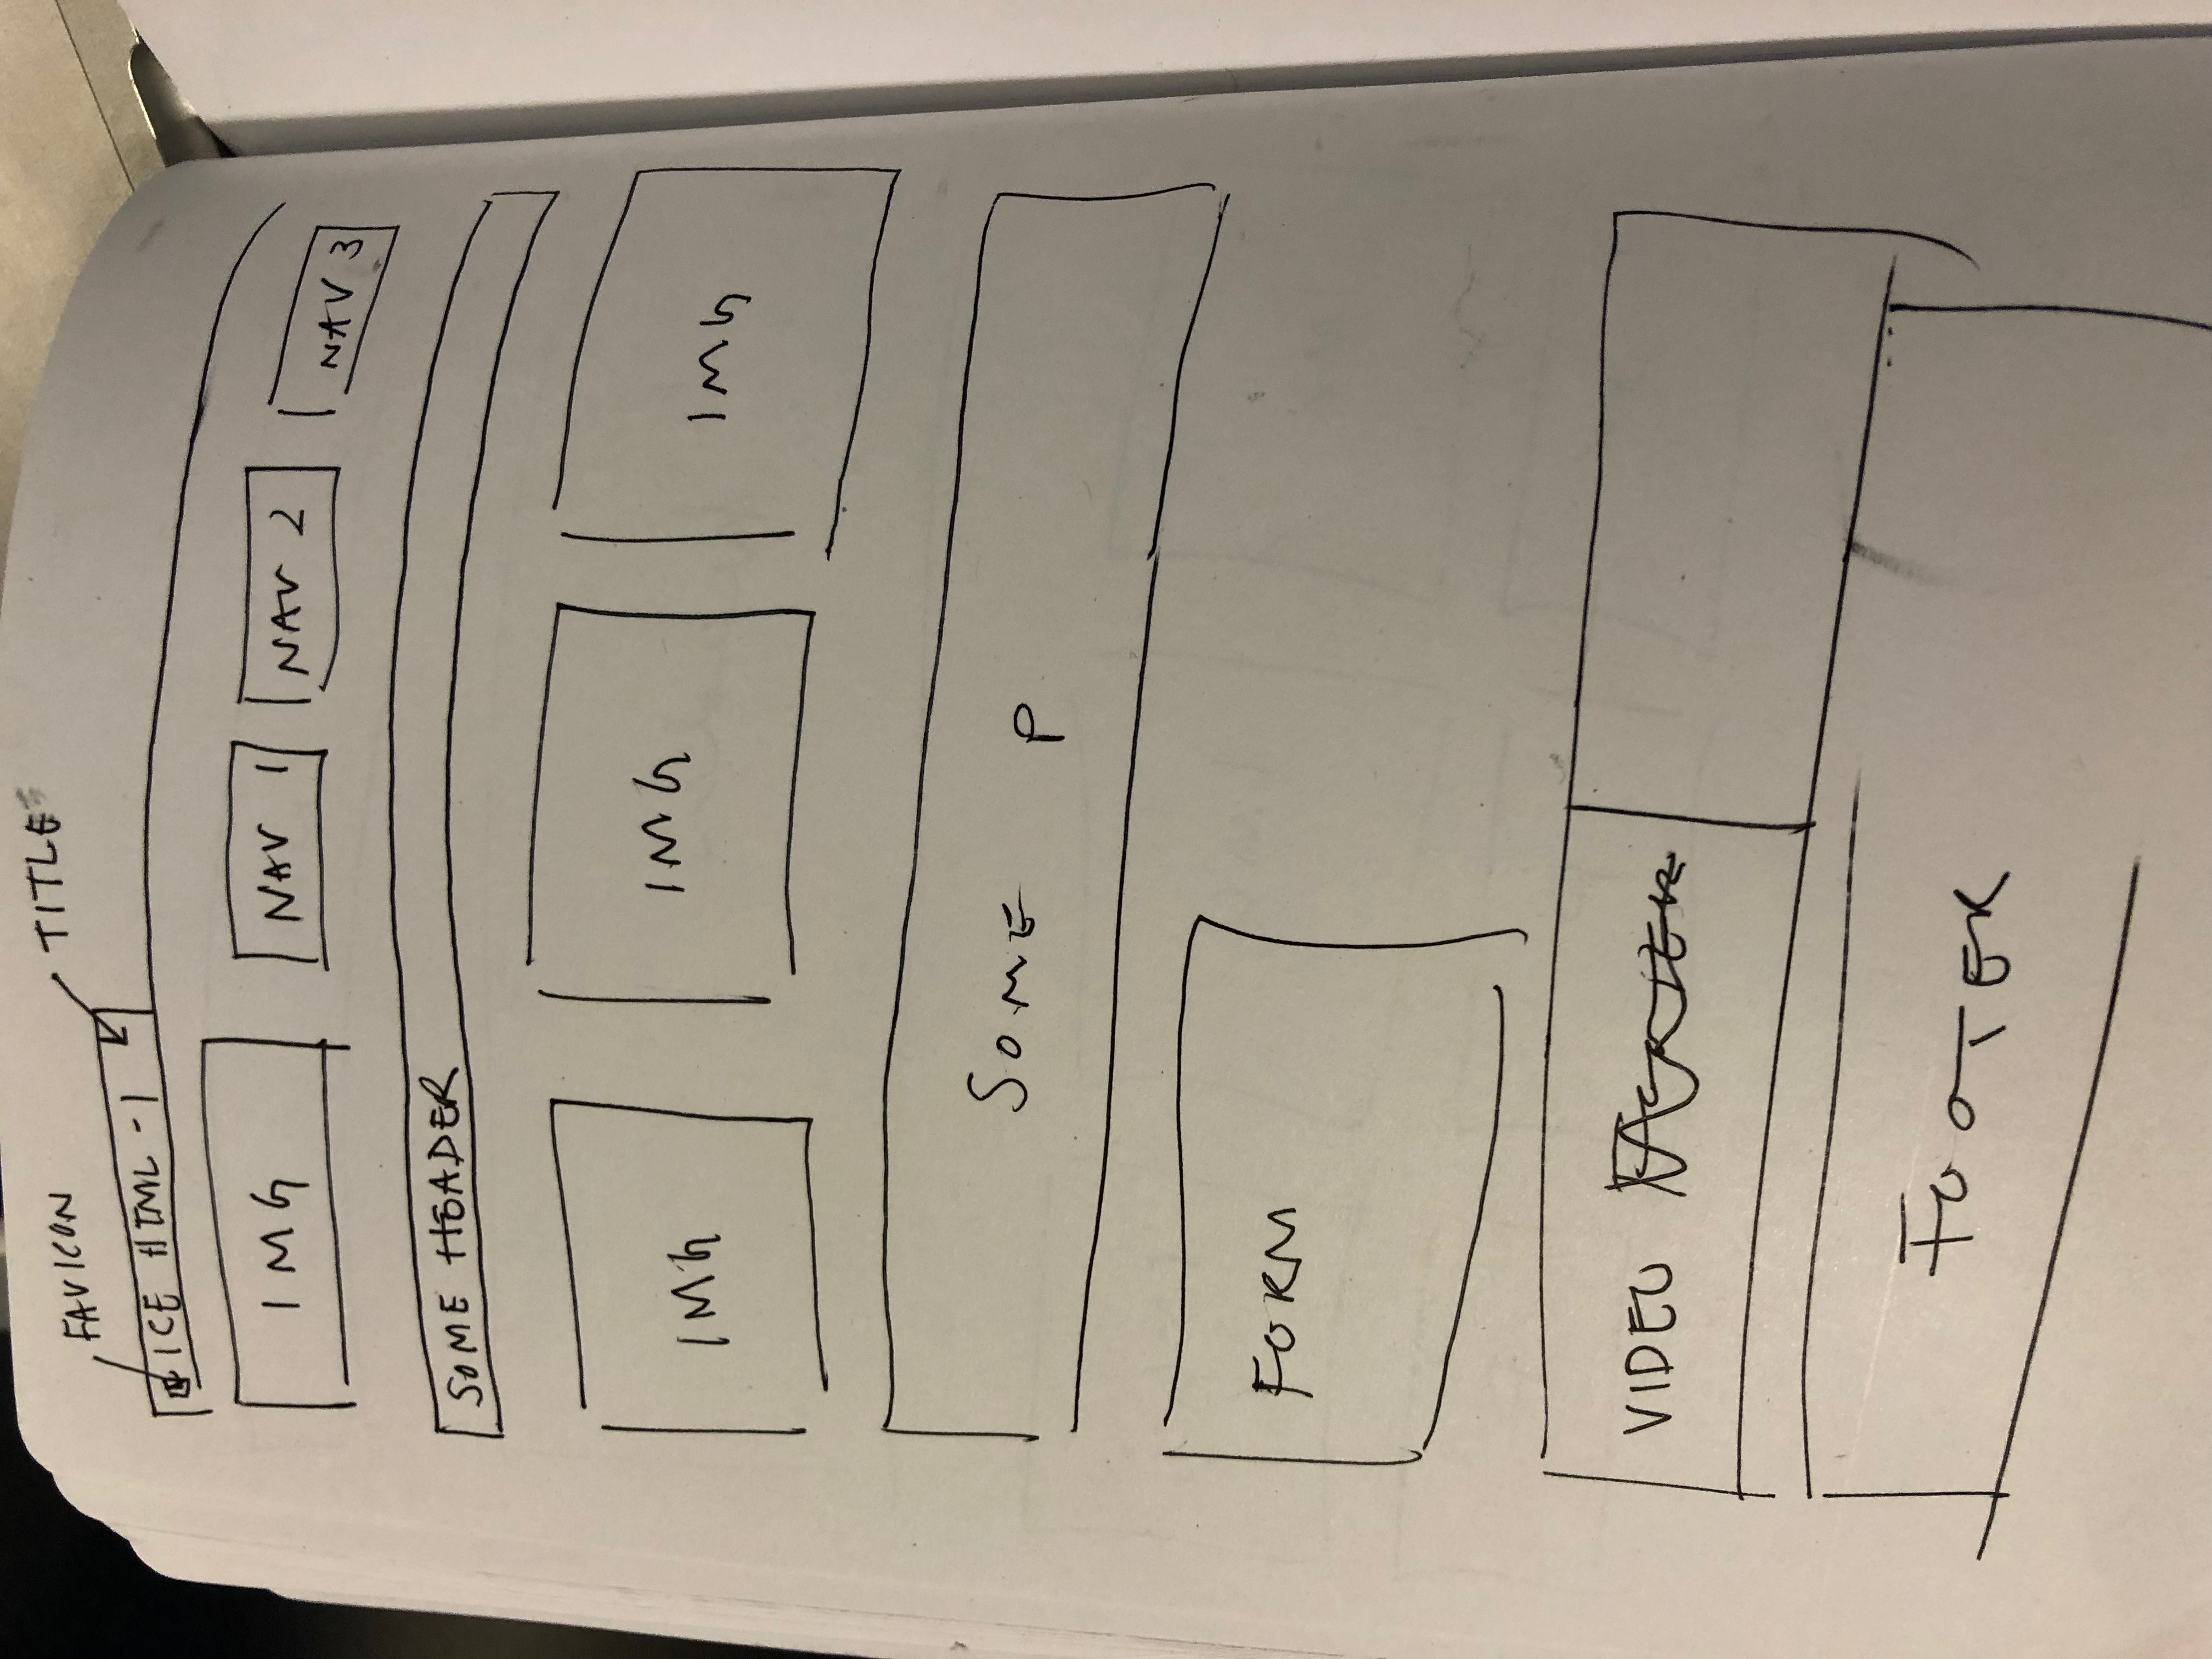 FAVICON TITLE
ICE HTML-1
IMG NAV 1 NAV 2 NAV 3
SOME HEADER
IMG IMG IMG
SOME P
FORM
VIDEO
FOOTER